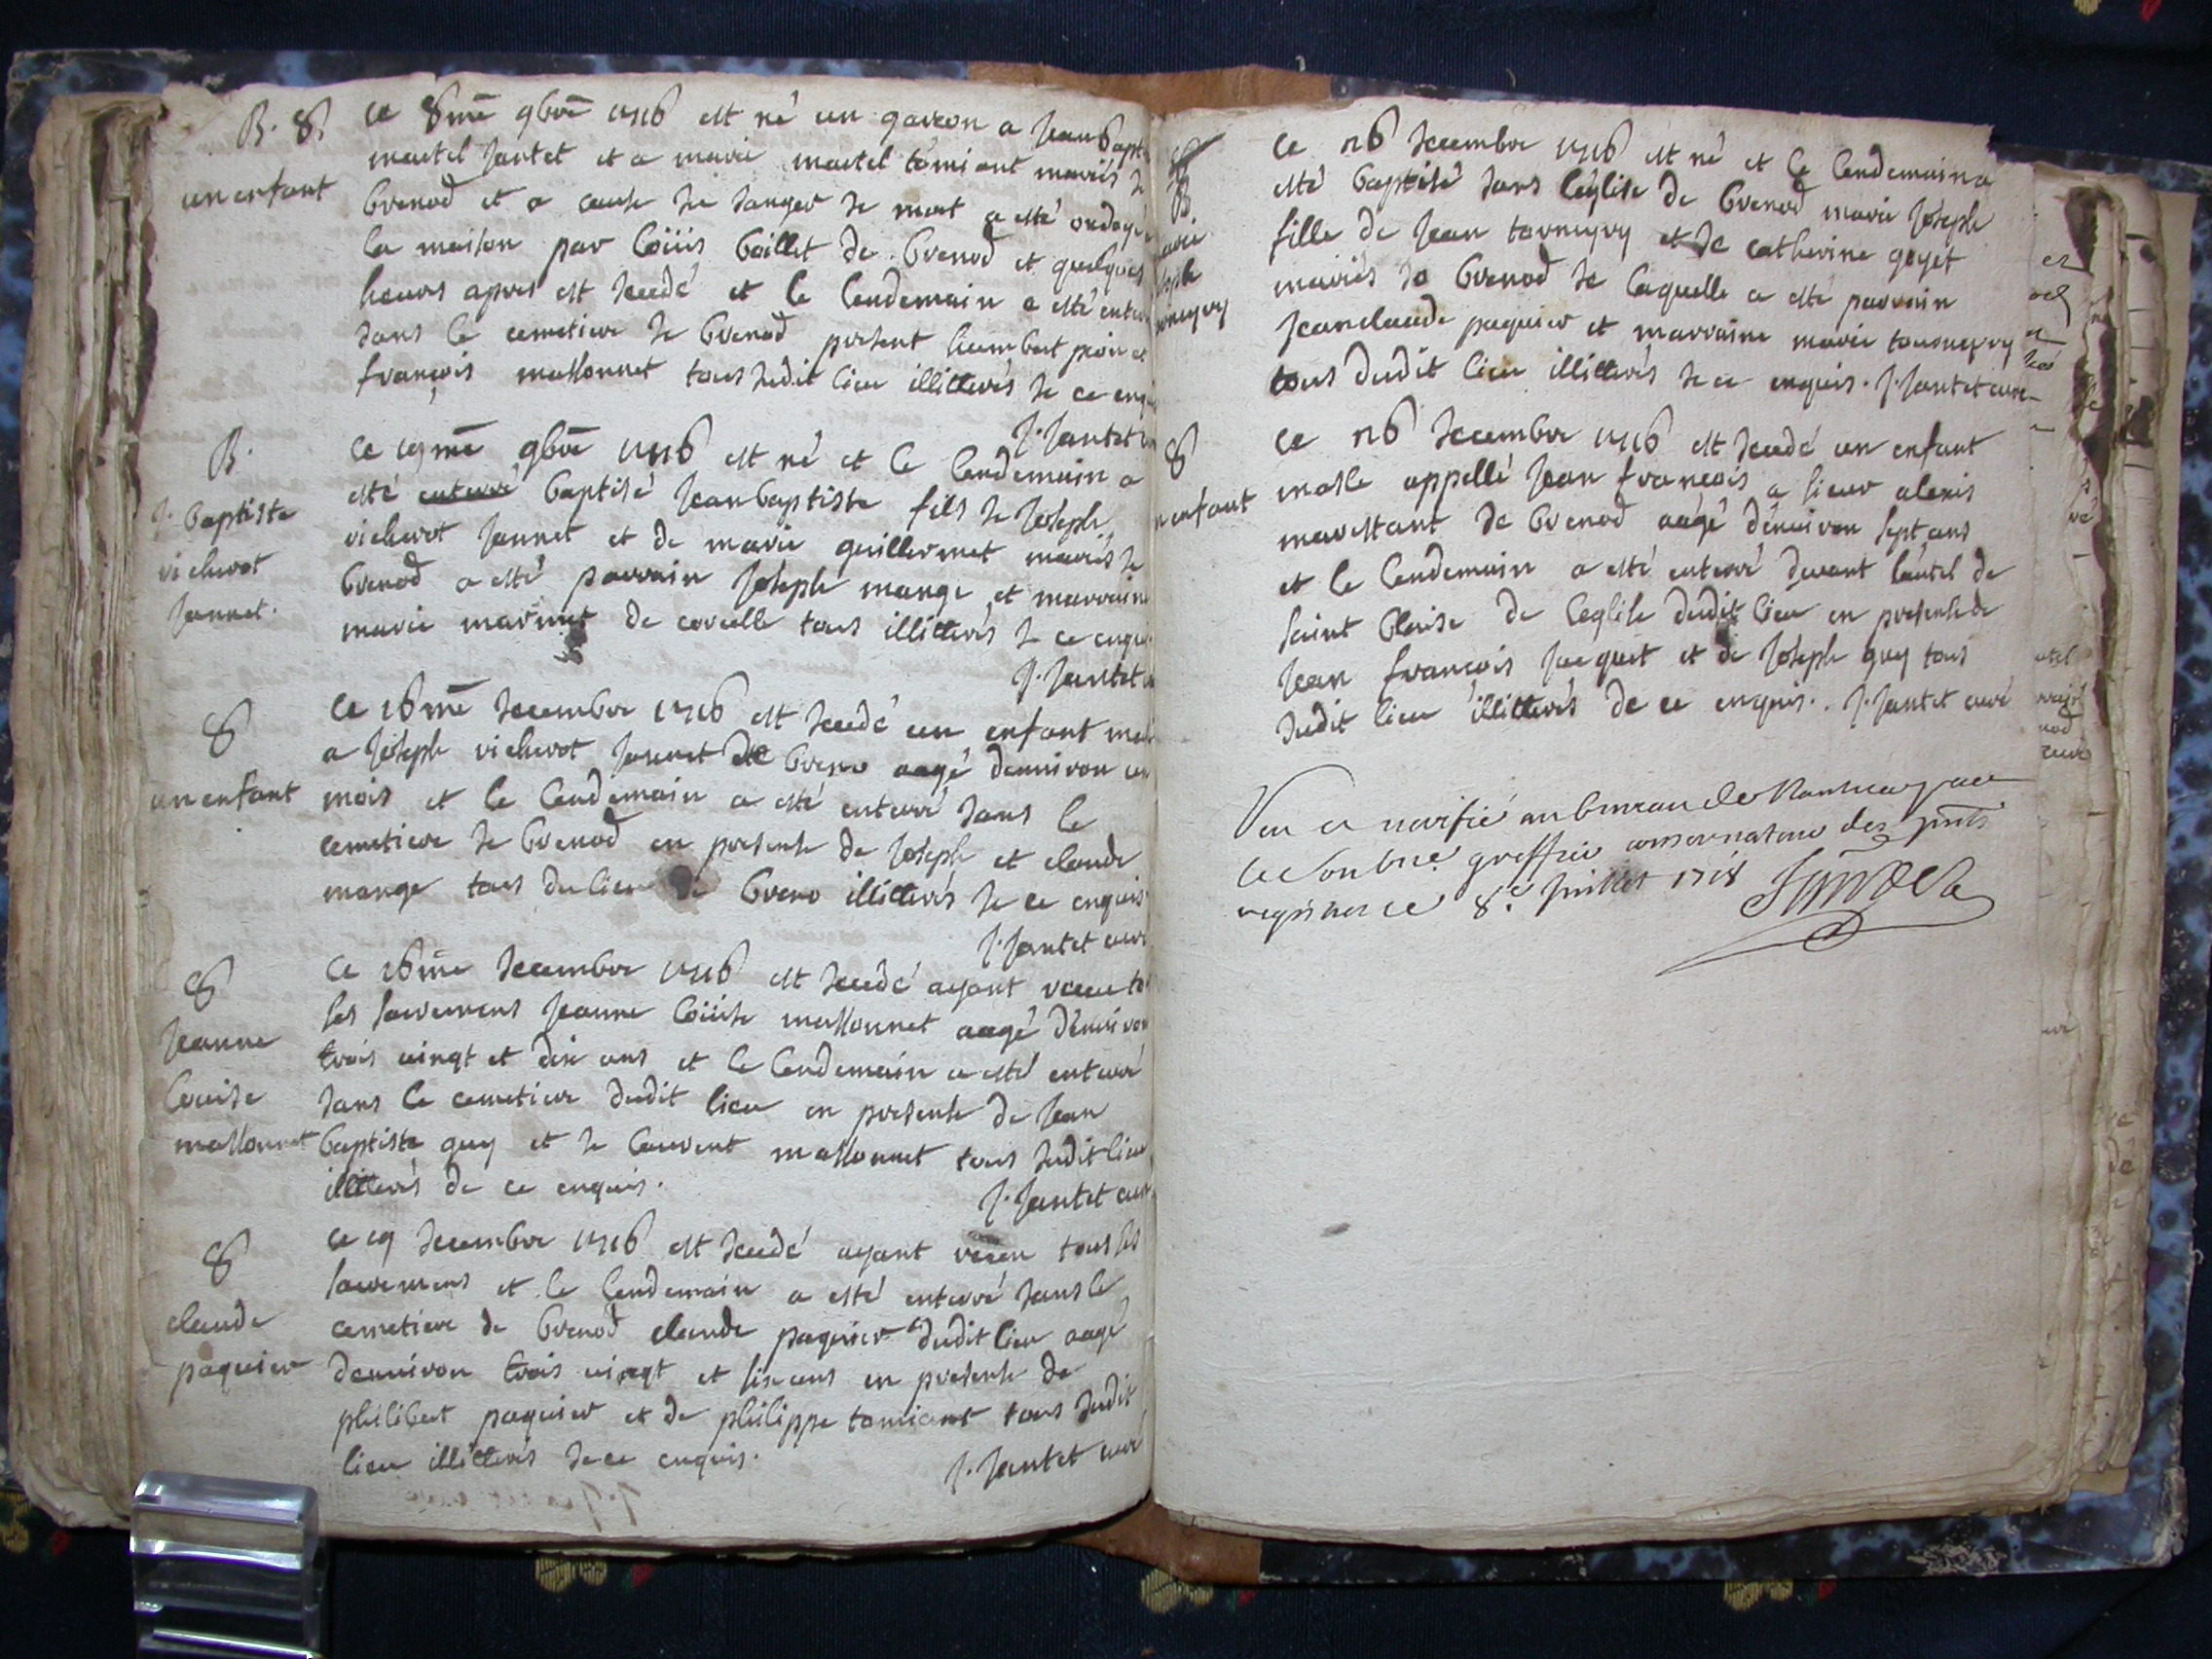 B. 8.
un enfant
ce 8me 9bre 1716 est né un garcon a Jean bapt
martel Jantet et a marie martel tomiant mariés de
brenod et a cause du danger de mort a esté ondoyé
la maison par Loüis baillet de brenod et quelques
heures apres est decedé et le lendemain a esté enter
dans le cemetiere de brenod present humbert poin et
françois massonnet tous dudit lieu illitterés de ce enqui
J. Jantet
B.
J. baptiste
vicherot
Jannet.
ce 19me 9bre 1716 est né et le lendemain a
esté enterré baptisé Jean baptiste fils de Joseph
vicherot Jannet et de marie guillermet mariés de
brenod a esté parrain Joseph mange et marraine
marie marmet de corcelle tous illitterés de ce enqui
J. Jantet
8
un enfant
ce 16me decembre 1716 est decedé un enfant mal
a Joseph vicherot Jannet de breno aagé denviron un
mois et le lendemain a esté enterré dans le
cemetiere de brenod en presense de Joseph et claude
mange tous du lieu de breno illitterés de ce enquis
J. Jantet curé
8
Jeanne
Louise
massonnet
ce 16me decembre 1716 est decedé ayant receu to
ses sacremens Jeanne Loüise massonnet aagé denviron
trois vingt et dix ans et le lendemain a esté enterré
dans le cemetiere dudit lieu en presense de Jean
baptiste guy et de laurent massonnet tous dudit lieu
illitterés de ce enquis.
J. Jantet curé
8
claude
paquier
ce 19 decembre 1716 est decedé ayant receu tous ses
sacremens et le lendemain a esté enterré dans le
cemetiere de brenod claude paquier dudit lieu aagé
denviron trois vingt et six ans en presense de
philibert paquier et de philippe tomiant tous dudit
lieu illitterés de ce enquis.
J. Jantet curé
B.
marie
Joseph
torneyry
ce 26 decembre 1716 est né et le lendemain a
esté baptisé dans l'eglise de brenod marie Joseph
fille de Jean torneyry et de catherine goyet
mariés de brenod de laquelle a esté parrain
Jean claude paquier et marraine marie tourneyry
tous dudit lieu illitterés de ce enquis. J. Jantet curé
8
un enfant
ce 26 decembre 1716 est decedé un enfant
masle appellé Jean françois a sieur alexis
marestant de brenod aagé denviron sept ans
et le lendemain a esté enterré devant lautel de
saint blaise de leglise dudit lieu en presense de
Jean françois Jacquet et de Joseph guy tous
dudit lieu illitterés de ce enquis. J. Jantet curé
Veu et veriffié au bureau de Nantua par
le greffier conservateur des pnts
registres ce 8e Juillet 1718